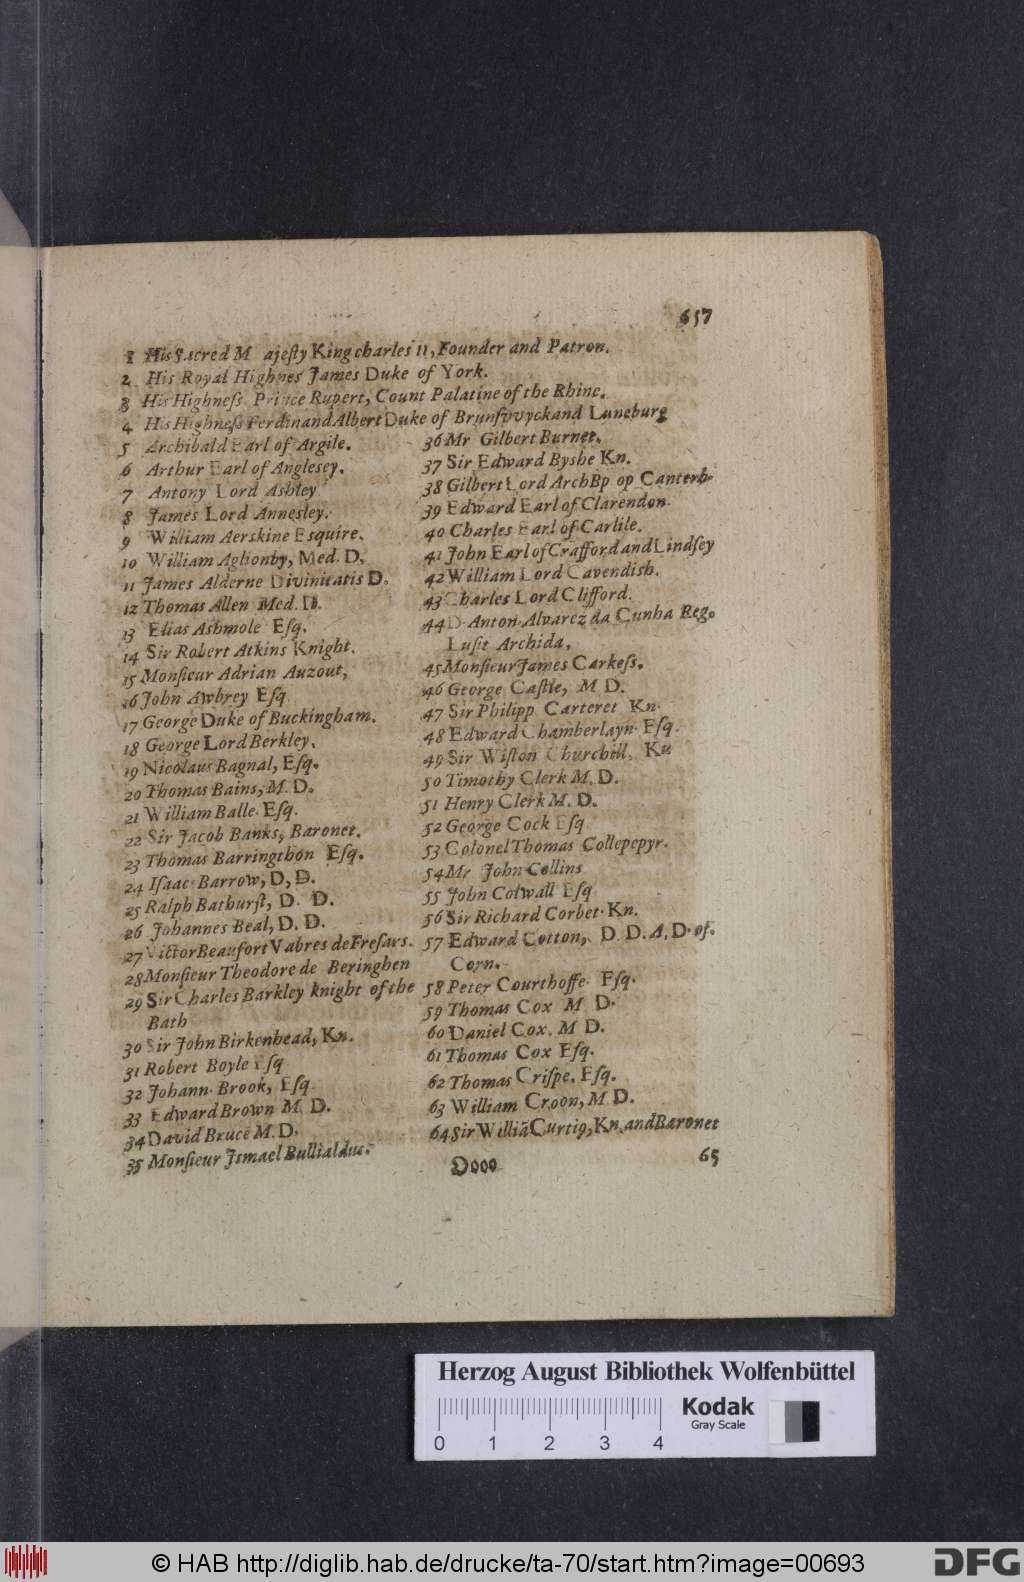 657
1 His Sacred M ajeſty King charles II, Founder and Patron.
2 His Royal Highnes James Duke of York.
3 His Highneſs Prince Rupert, Count Palatine of the Rhine.
4 His Highneſs Ferdinand Albert Duke of Brunſvvyck and Luneburg
5 Archibald Earl of Argile.
6 Arthur Earl of Anglesey.
7 Antony Lord Ashley
8 James Lord Annesley.
9 William Aerskine Esquire.
10 William Aglionby, Med. D.
11 James Alderne Divinitatis D.
12 Thomas Allen Med. D.
13 Elias Ashmole Eſq.
14 Sir Robert Atkins Knight.
15 Monſieur Adrian Auzout,
16 John Awbrey Eſq
17 George Duke of Buckingham.
18 George Lord Berkley.
19 Nicolaus Bagnal, Eſq.
20 Thomas Bains, M. D.
21 William Balle. Eſq.
22 Sir Jacob Banks, Baronet.
23 Thomas Barringthon Eſq.
24 Iſaac Barrow, D, D.
25 Ralph Bathurſt, D. D.
26 Johannes Beal, D. D.
27 Victor Beaufort Vabres de Freſars.
28 Monſieur Theodore de Beringhen
29 Sir Charles Barkley knight of the
Bath
30 Sir John Birkenhead, Kn.
31 Robert Boyle Eſq
32 Johann. Brook, Eſq
33 Edward Brown M. D.
34 David Bruce M. D.
35 Monſieur Iſmael Bullialdus.
36 Mr Gilbert Burnet.
37 Sir Edward Byshe Kn.
38 Gilbert Lord ArchBp op Canterb.
39 Edward Earl of Clarendon.
40 Charles Earl of Carlile.
41 John Earl of Crafford and Lindſey
42 William Lord Cavendish.
43 Charles Lord Clifford.
44 D. Anton. Alvarez da Cunha Reg.
Luſit Archida,
45 Monſieur James Carkeſs.
46 George Caſtle, M D.
47 Sir Philipp Carteret Kn.
48 Edward Chamberlayn. Eſq.
49 Sir Wiſton Churchill, Kn
50 Timothy Clerk M. D.
51 Henry Clerk M. D.
52 George Cock Eſq
53 Colonel Thomas Collepepyr.
54 Mr John Collins
55 John Colwall Eſq
56 Sir Richard Corbet. Kn.
57 Edward Cotton, D. D. A. D. of.
Corn.
58 Peter Courthoffe Eſq.
59 Thomas Cox M D.
60 Daniel Cox. M D.
61 Thomas Cox Eſq.
62 Thomas Criſpe. Eſq.
63 William Croon, M D.
64 Sir Williã Curtiꝰ, Kn. and Baronet
Oooo 65
Herzog August Bibliothek Wolfenbüttel
0 1 2 3 4
Kodak
Gray Scale
© HAB http://diglib.hab.de/drucke/ta-70/start.htm?image=00693
DFG